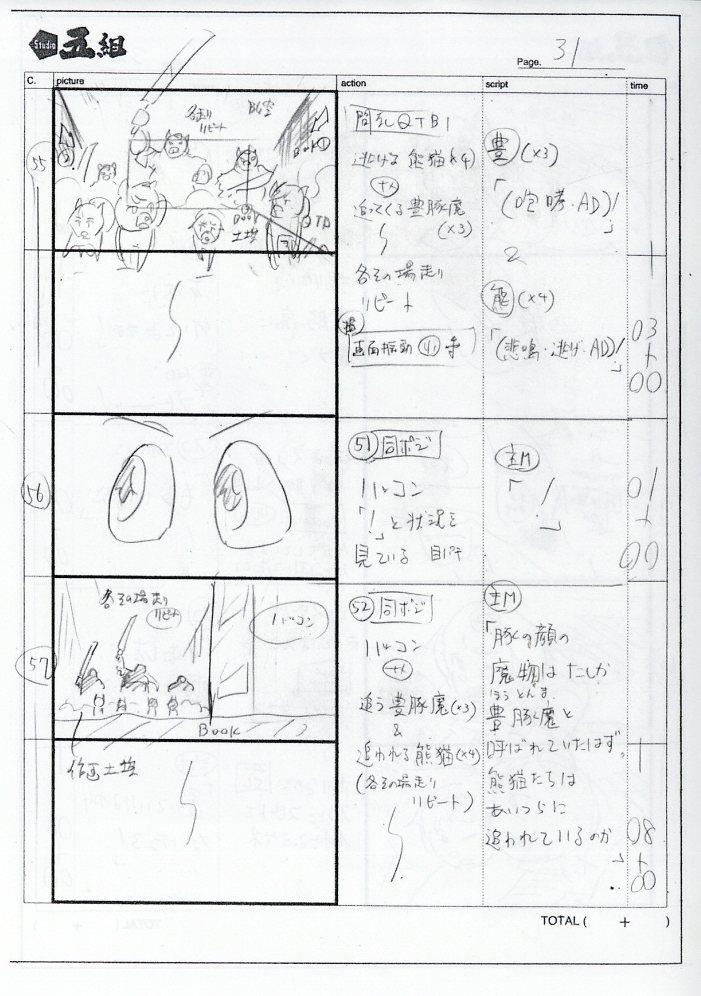 Studio 五組
Page. 31
C. picture action script time
55
各走り
リピート
BG空
Book
土煙
逃げる 熊猫(×4)
追ってくる豊豚魔
(×3)
各その場走り
リピート
画面振動
豊(×3)
「(咆哮・AD)!
」
熊(×4)
「(悲鳴・逃げ・AD)!
」
03
+
00
56
51 同ポジ
ハルコン
「!」と状況を
見ている 目パチ
主M
「!
」
01
+
00
57
各その場走り
リピート
ハルコン
Book
作画土煙
52 同ポジ
ハルコン
追う豊豚魔(×3)
&
追われる熊猫(×4)
(各その場走り
リピート)
主M
「豚の顔の
魔物はたしか
ほうとんま
豊豚魔と
呼ばれていたはず。
熊猫たちは
あいつらに
追われているのか
」
08
+
00
TOTAL ( + )